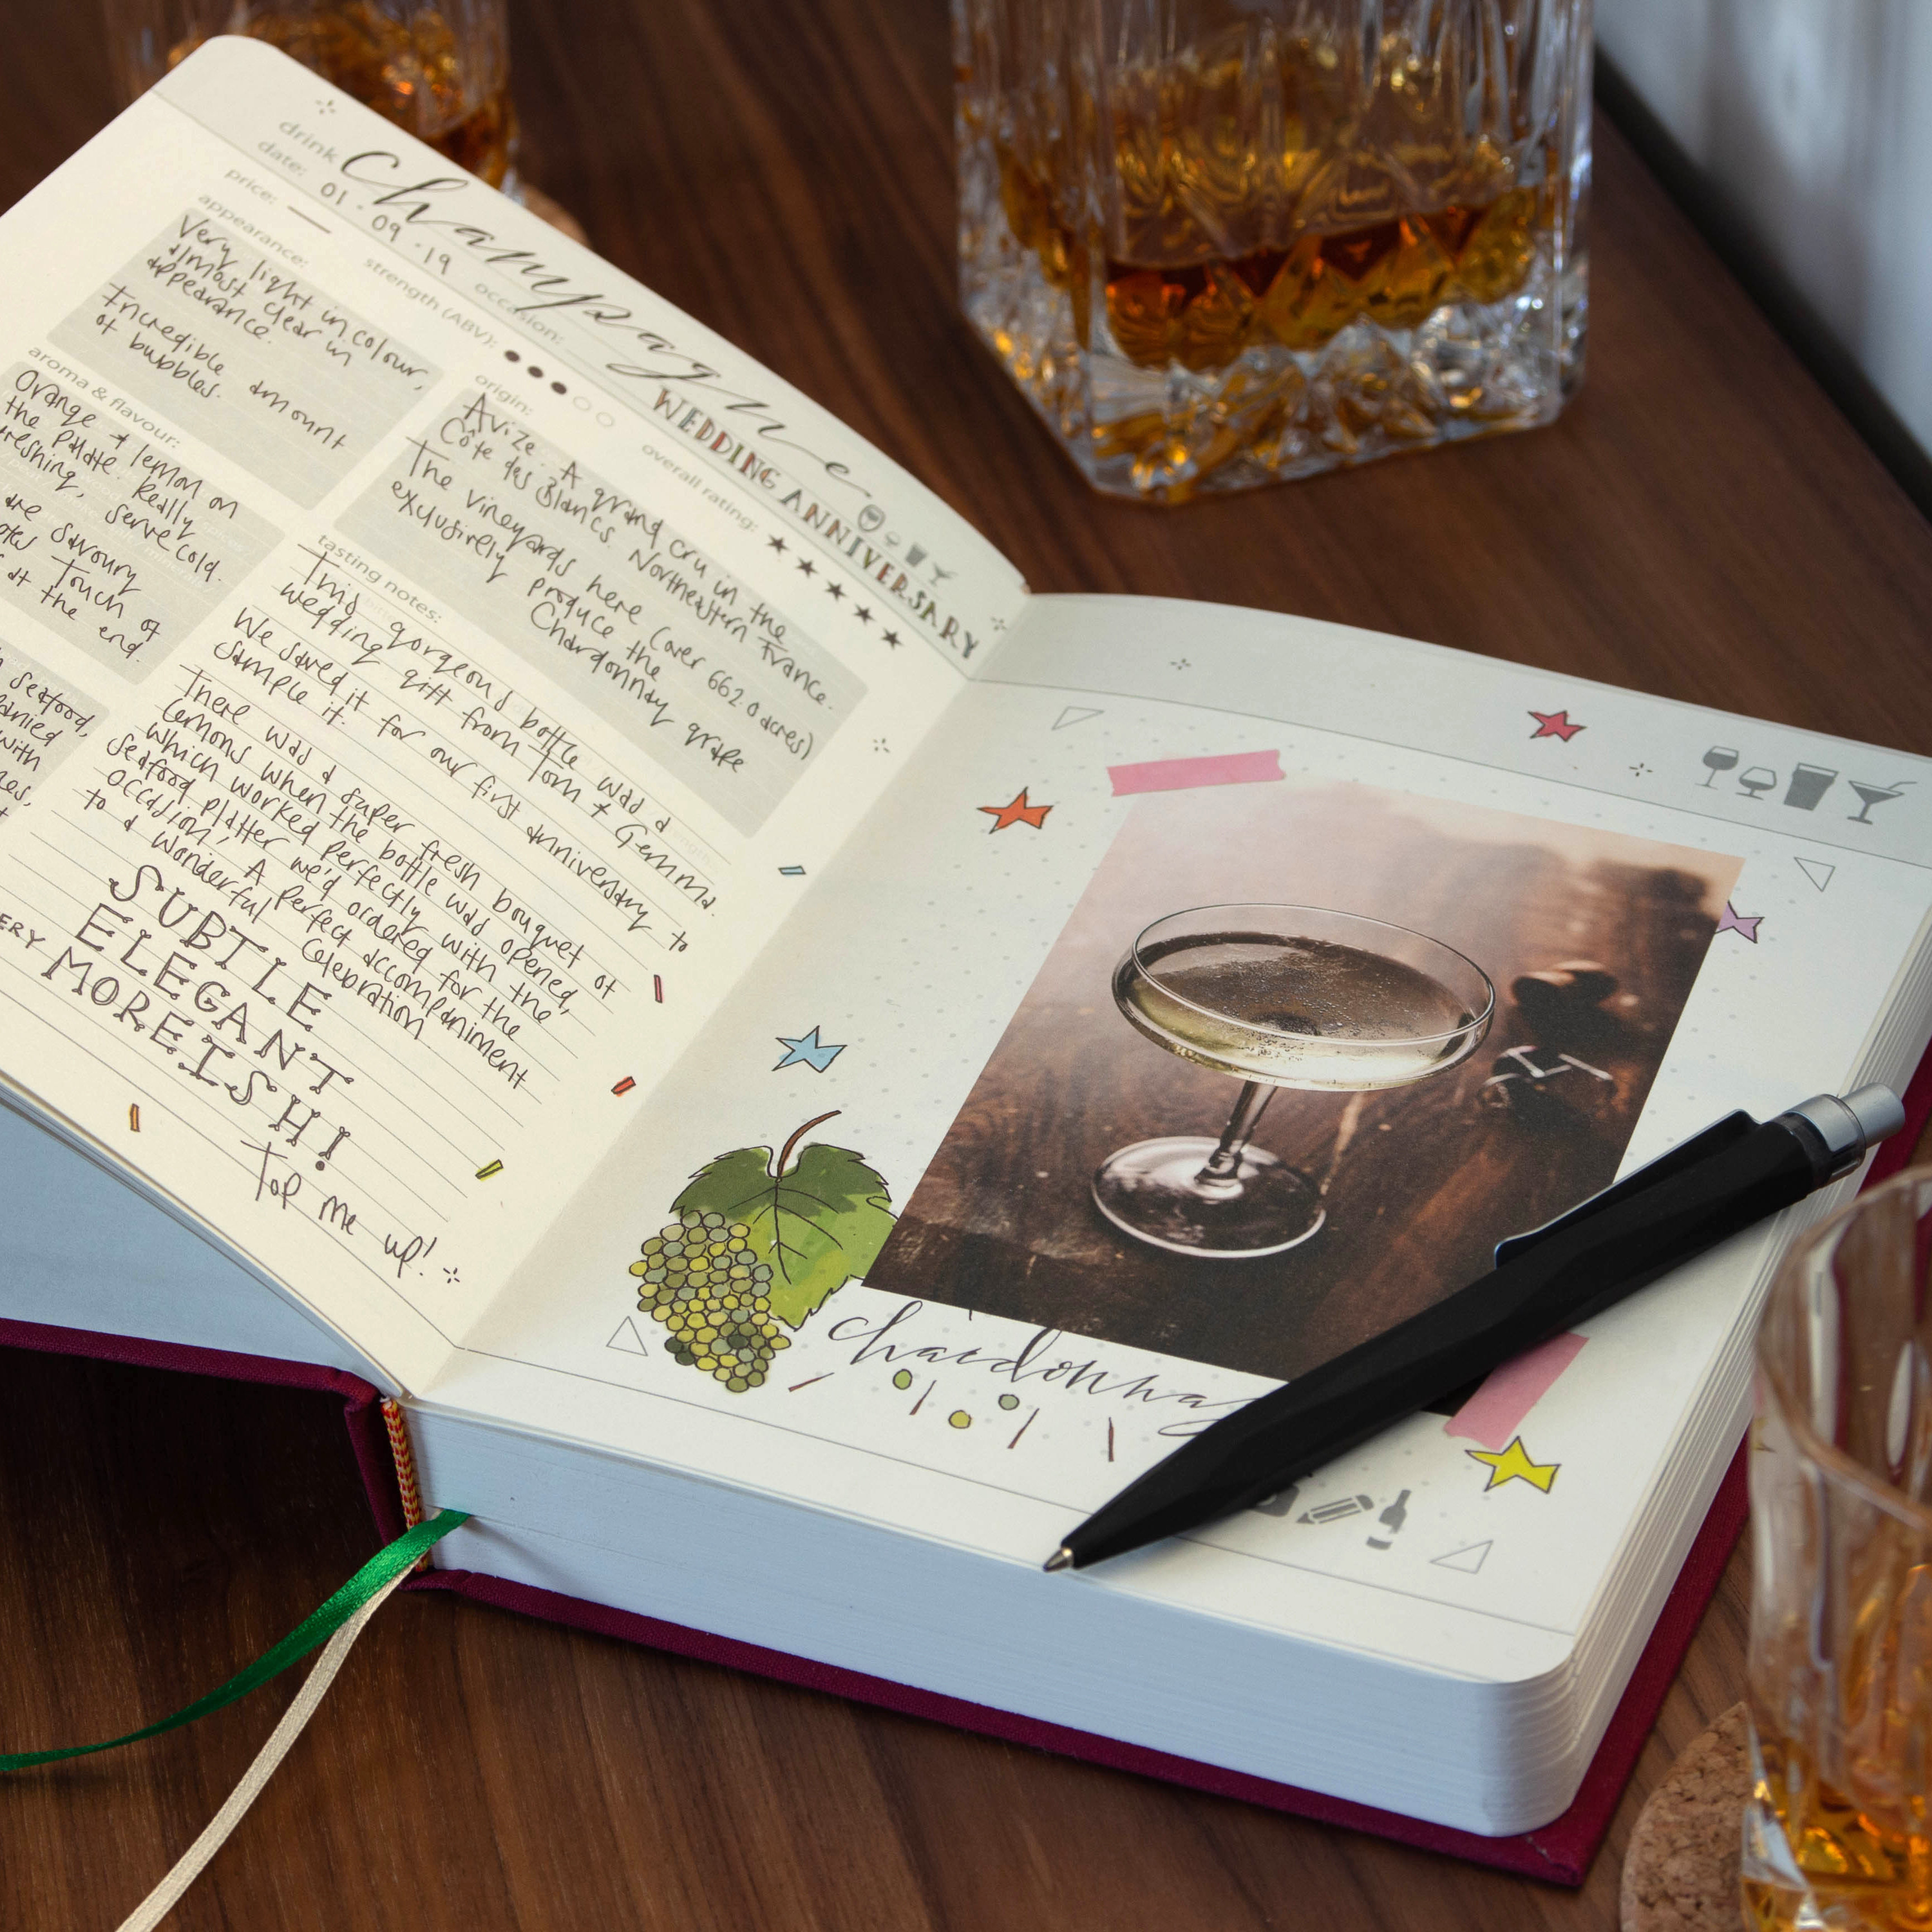 drink Champagne
date: 01·09·19 occasion: WEDDING ANNIVERSARY
price: — strength (ABV): overall rating: ★★★★★
appearance:
Very light in colour,
almost clear in
appearance.
Incredible amount
of bubbles.
origin:
Avize. A grand cru in the
Côte des Blancs. Northeastern France.
The vineyards here (over 662.0 acres)
exclusively produce the
Chardonnay grape
aroma & flavour:
Orange + lemon on
the palate. Really
serve cold.
are savoury
Touch of
at the end.
seafood,
with
tasting notes:
This gorgeous bottle was a
wedding gift from Tom + Gemma.
We saved it for our first anniversary to
sample it.
There was a super fresh bouquet of
lemons when the bottle was opened,
which worked perfectly with the
seafood platter we'd ordered for the
occasion; A perfect accompaniment
to a wonderful celebration
SUBTLE
ELEGANT
MOREISH!
Top me up!
chardonnay